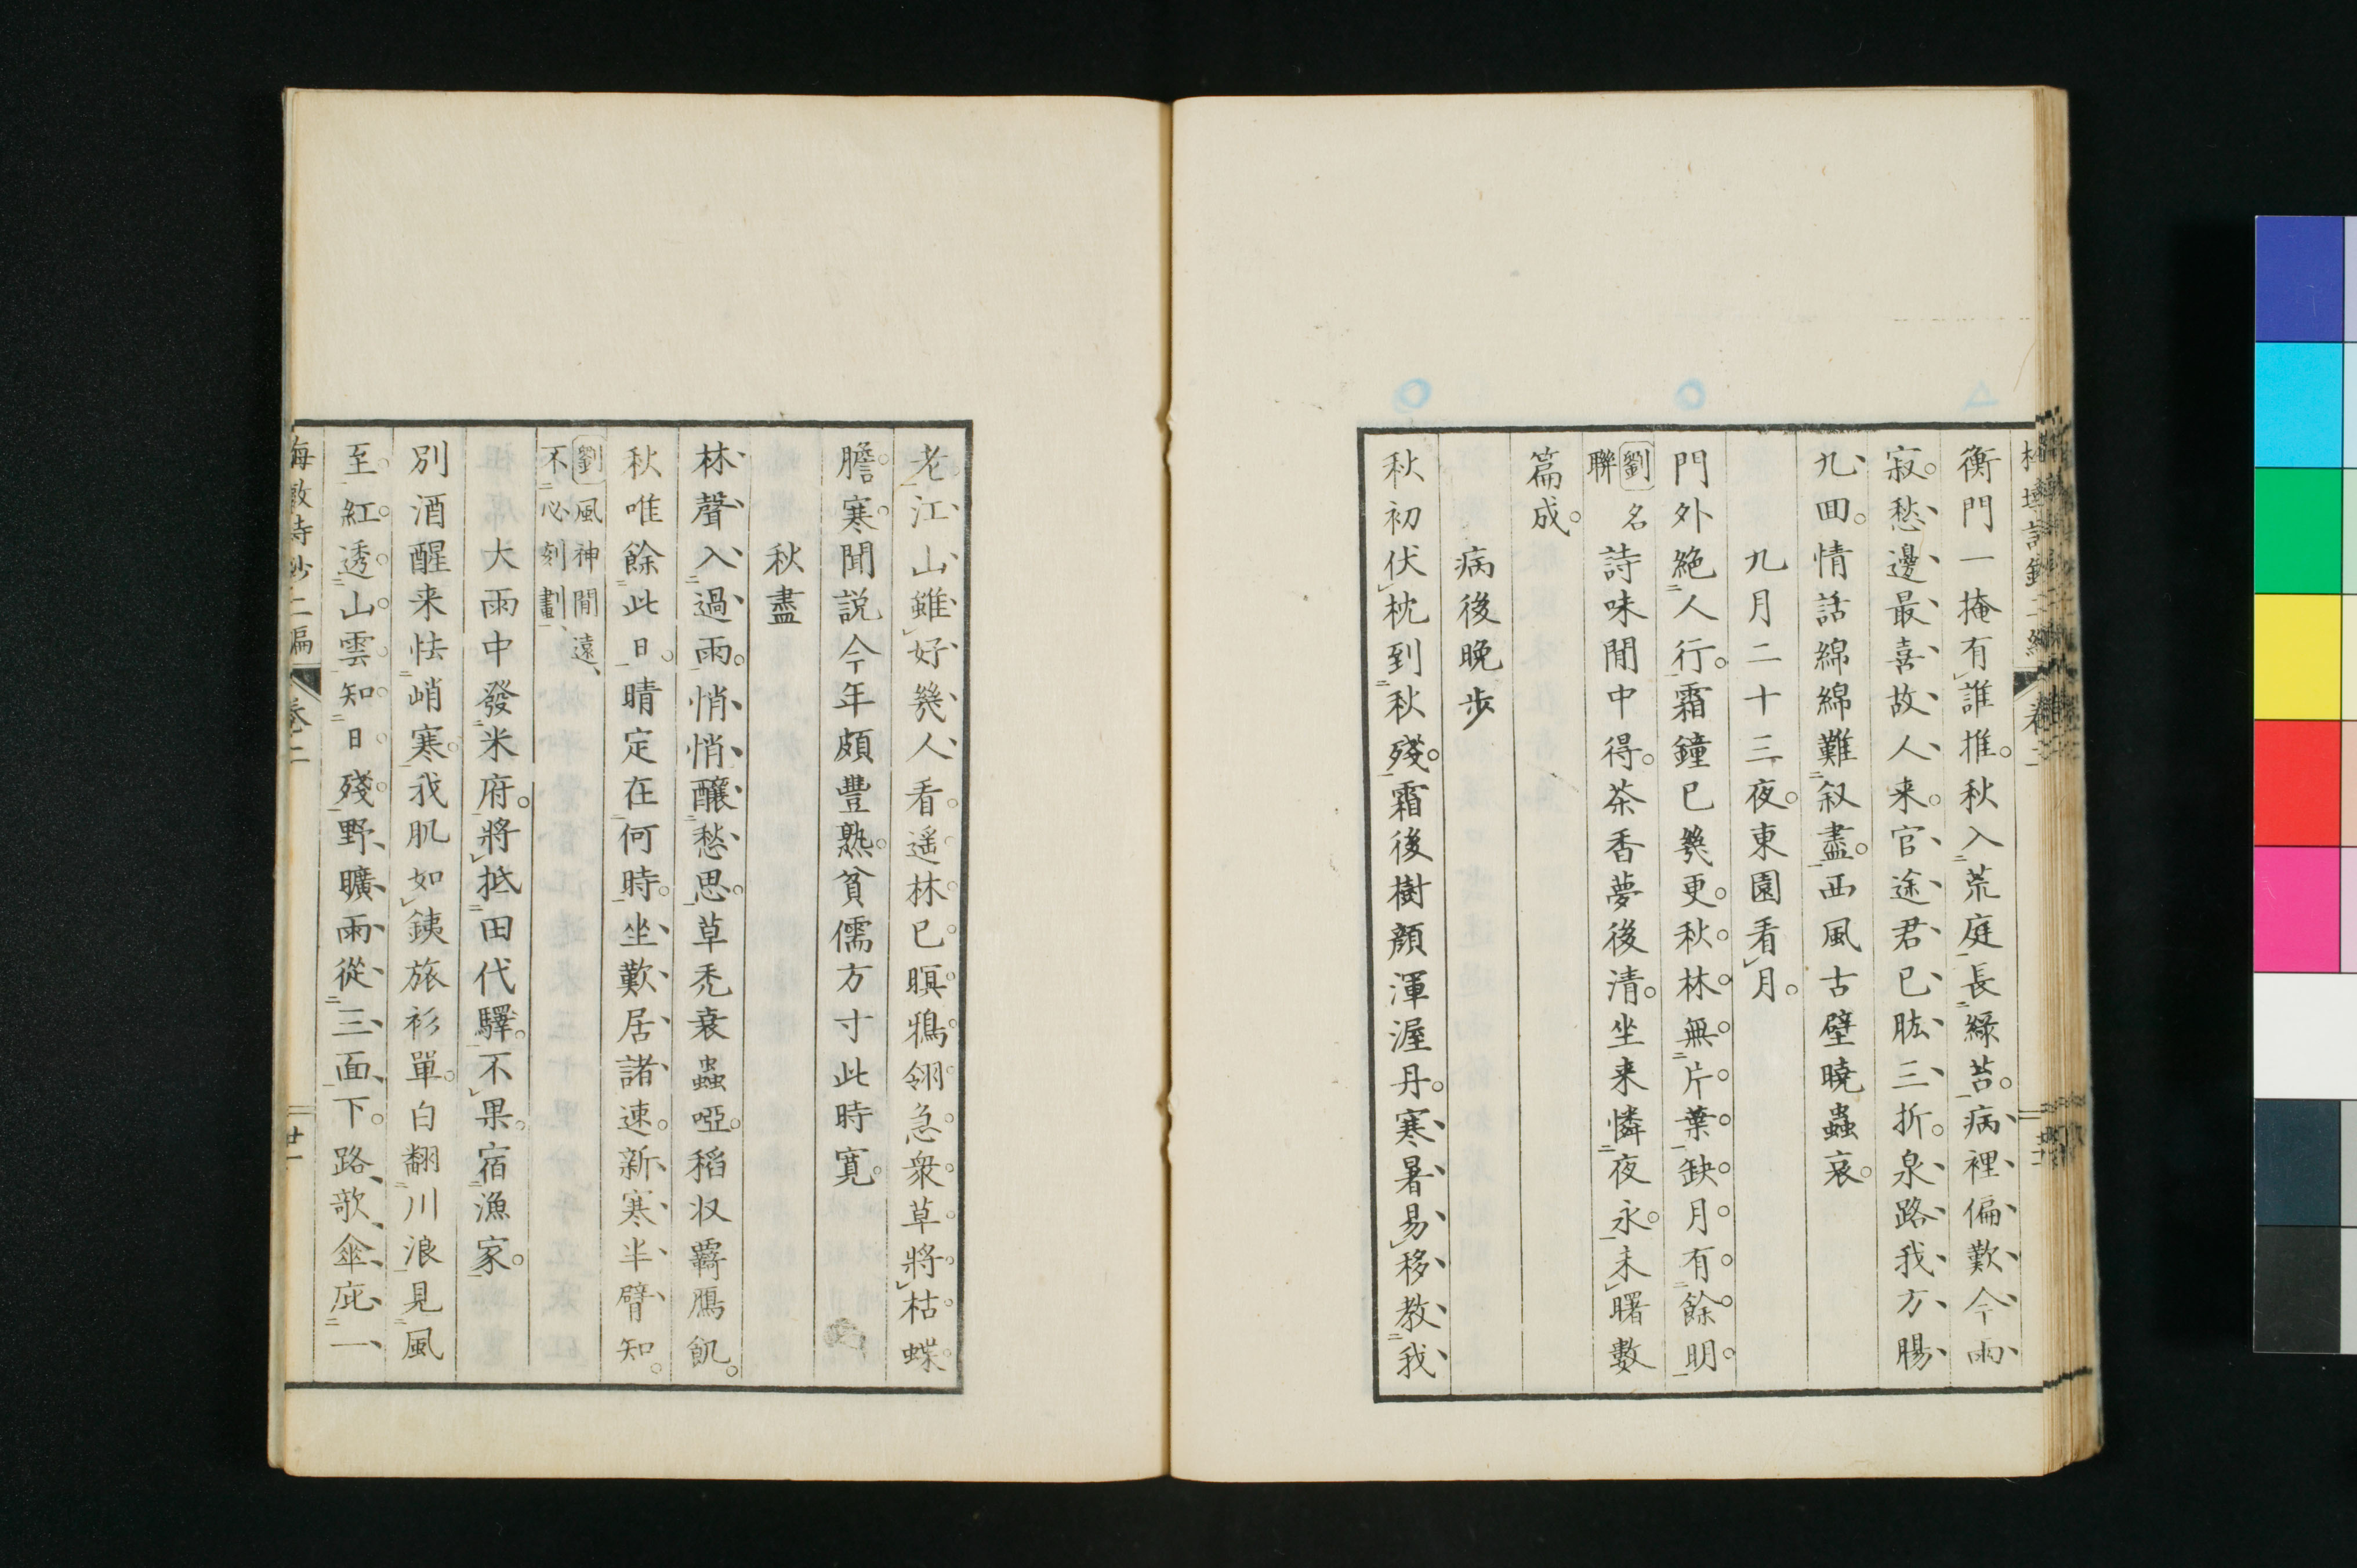 衡門一掩有誰推。秋入荒庭長緑苔。病裡偏歎今雨
寂。愁邊最喜故人来。官途君已肱三折。泉路我方腸
九回。情話綿綿難叙盡。西風古壁曉蟲哀。
九月二十三夜。東園看月。
門外絶人行。霜鐘已幾更。秋林無片葉。缺月有餘明。
劉 名聯 詩味閒中得。茶香夢後清。坐来憐夜永。未曙數
篇成。
病後晩步
秋初伏枕到秋殘。霜後樹顔渾渥丹。寒暑易移教我
老。江山雖好幾人看。遥林已暝鴉翎急。衆草將枯蝶
膽寒。聞説今年頗豐熟。貧儒方寸此時寛。
秋盡
林聲入過雨。悄悄釀愁思。草禿衰蟲啞。稻収霸鴈飢。
秋唯餘此日。晴定在何時。坐歎居諸速。新寒半臂知。
劉 風神閒遠、
不心刻劃、
大雨中發米府。將抵田代驛。不果。宿漁家。
別酒醒来怯峭寒。我肌如銕旅衫單。白翻川浪見風
至。紅透山雲知日殘。野曠雨從三面下。路欹傘庇一
梅墩詩鈔二編 卷二 廿一